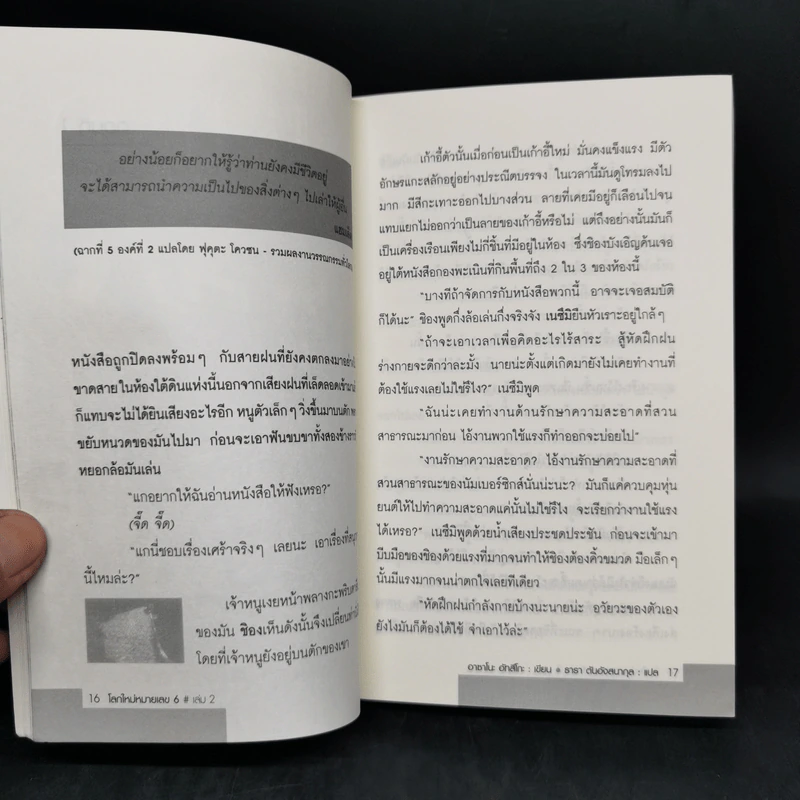 อย่างน้อยก็อยากให้รู้ว่าท่านยังคงมีชีวิตอยู่
จะได้สามารถนำความเป็นไปของสิ่งต่างๆ ไปเล่าให้ผู้อื่น
(ฉากที่ 5 องค์ที่ 2 แปลโดย ฟุคุดะ โควซน - รวมผลงานวรรณกรรม
หนังสือถูกปิดลงพร้อมๆ กับสายฝนที่ยังคงตกลงมาอย่าง
ขาดสายในห้องใต้ดินแห่งนี้นอกจากเสียงฝนที่เล็ดลอดเข้ามา
ก็แทบจะไม่ได้ยินเสียงอะไรอีก หนูตัวเล็กๆ วิ่งขึ้นมาบนตัก
ขยับหนวดของมันไปมา ก่อนจะเอาฟันขบขาทั้งสองข้าง
หยอกล้อมันเล่น
"แกอยากให้ฉันอ่านหนังสือให้ฟังเหรอ?"
(จี๊ด จี๊ด)
"แกนี่ชอบเรื่องเศร้าจริงๆ เลยนะ เอาเรื่องที่
นี้ไหมล่ะ?"
เจ้าหนูเงยหน้าพลางกะพริบตา
ของมัน ชิองเห็นดังนั้นจึงเปลี่ยน
โดยที่เจ้าหนูยังอยู่บนตักของเขา
16 โลกใหม่หมายเลข 6 # เล่ม 2
เก้าอี้ตัวนั้นเมื่อก่อนเป็นเก้าอี้ใหม่ มั่นคงแข็งแรง มีตัว
อักษรแกะสลักอยู่อย่างประณีตบรรจง ในเวลานี้มันดูโทรมลงไป
มาก มีสีกะเทาะออกไปบางส่วน ลายที่เคยมีอยู่ก็เลือนไปจน
แทบแยกไม่ออกว่าเป็นลายของเก้าอี้หรือไม่ แต่ถึงอย่างนั้นมันก็
เป็นเครื่องเรือนเพียงไม่กี่ชิ้นที่มีอยู่ในห้อง ซึ่งชิองบังเอิญค้นเจอ
อยู่ใต้หนังสือกองพะเนินที่กินพื้นที่ถึง 2 ใน 3 ของห้องนี้
"บางทีถ้าจัดการกับหนังสือพวกนี้ อาจจะเจอสมบัติ
ก็ได้นะ" ชิองพูดกึ่งล้อเล่นกึ่งจริงจัง เนซึมิยืนหัวเราะอยู่ใกล้ๆ
"ถ้าจะเอาเวลาเพื่อคิดอะไรไร้สาระ สู้หัดฝึกฝน
ร่างกายจะดีกว่าละมั้ง นายน่ะตั้งแต่เกิดมายังไม่เคยทำงานที่
ต้องใช้แรงเลยไม่ใช่รึไง?" เนซึมิพูด
"ฉันน่ะเคยทำงานด้านรักษาความสะอาดที่สวน
สาธารณะมาก่อน ไอ้งานพวกใช้แรงก็ทำออกจะบ่อยไป"
"งานรักษาความสะอาด? ไอ้งานรักษาความสะอาดที่
สวนสาธารณะของนัมเบอร์ซิกส์นั่นน่ะนะ? มันก็แค่ควบคุมหุ่น
ยนต์ให้ไปทำความสะอาดแค่นั้นไม่ใช่รึไง จะเรียกว่างานใช้แรง
ได้เหรอ?" เนซึมิพูดด้วยน้ำเสียงประชดประชัน ก่อนจะเข้ามา
บีบมือของชิองด้วยแรงที่มากจนทำให้ชิองต้องคิ้วขมวด มือเล็กๆ
นั้นมีแรงมากจนน่าตกใจเลยทีเดียว
"หัดฝึกฝนกำลังกายบ้างนะนายน่ะ อวัยวะของตัวเอง
ยังไงมันก็ต้องได้ใช้ จำเอาไว้ล่ะ"
อาซาโนะ อัทสึโกะ : เขียน ธารา ตันอังสนากุล : แปล 17